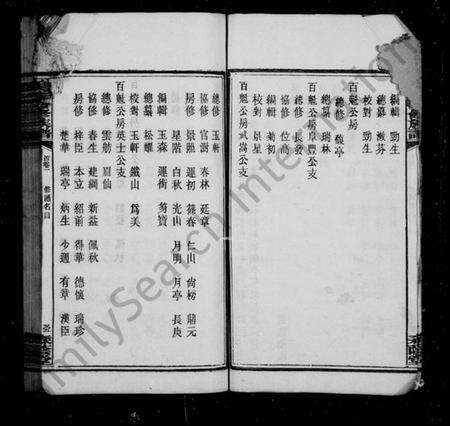 編輯 勁生
總纂 淑芬
校對 勁生
百魁公房
總修 馥亭
百魁公房阜豐公支
總纂 瑞林
總修 長發
協修 位高
編輯 菊初
校對 景星
百魁公房武嵩公支
總修 玉軒
協修 官澍 春林 廷章
房修 景照 運初 籌春 仁山 尙榜 鼎元
星階 白秋 光山 月明 月亭 長庚
編輯 玉森 運衡 菊寶
總纂 松耀
校對 玉軒 鐵山 爲美
百魁公房英士公支
總修 雲舫 眉仙
協修 春生 建綱 新益 佩秋
房修 梓臣 本立 紹前 得華 德懷 瑞珍
楚華 瑞亭 炳生 少週 有章 漢臣
首卷 修譜名目
FamilySearch International